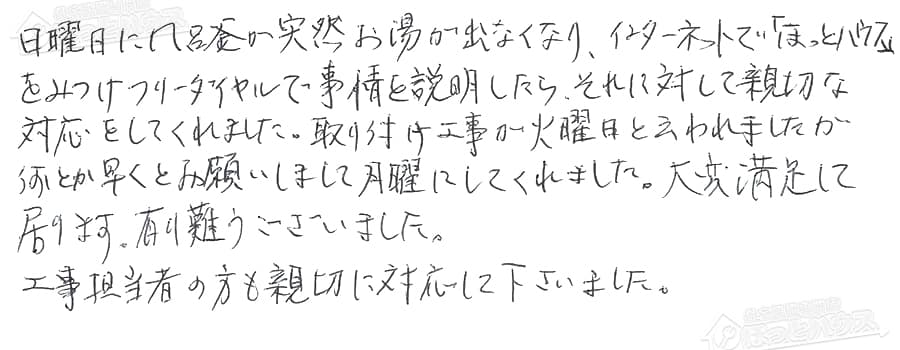 日曜日に風呂釜が突然お湯が出なくなり、インターネットで「ほっとハウス」
をみつけフリーダイヤルで事情を説明したら、それに対して親切な
対応をしてくれました。取り付け工事が火曜日と云われましたが
何とか早くとお願いしまして月曜にしてくれました。大変満足して
居ります。有り難うございました。
工事担当者の方も親切に対応して下さいました。
ほっとハウス